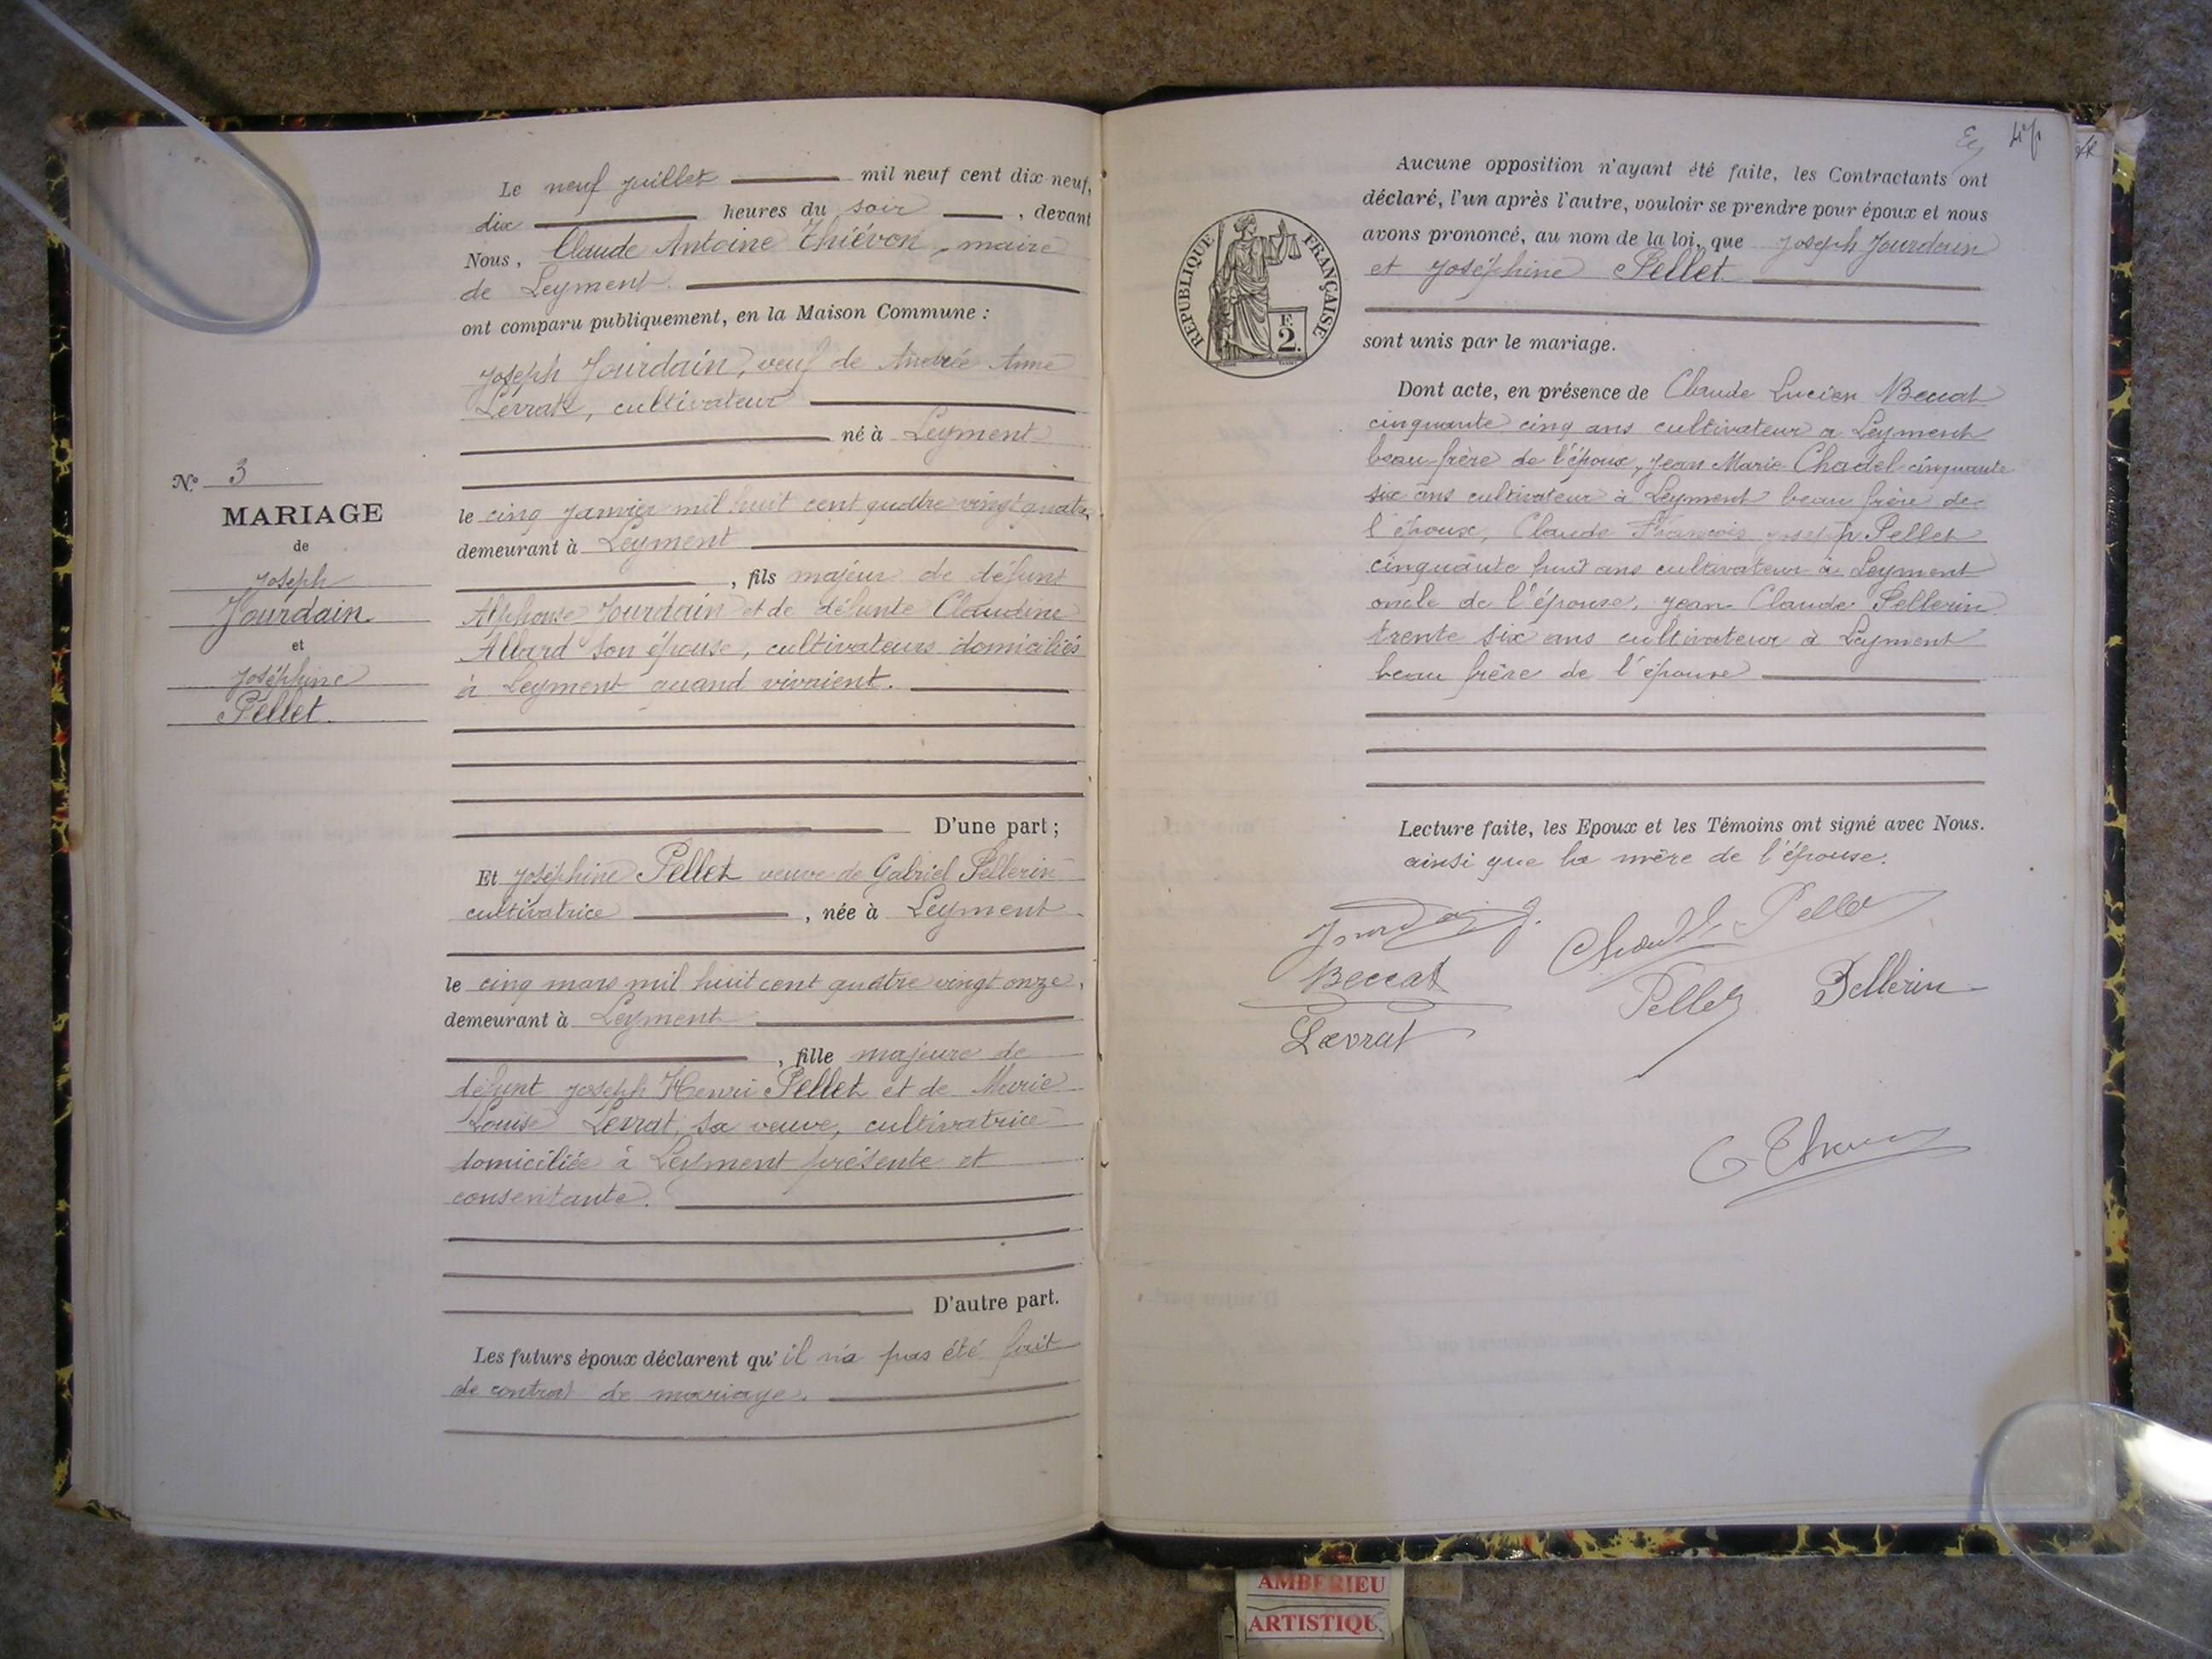 Le neuf juillet mil neuf cent dix-neuf,
dix heures du soir, devant
Nous, Claude Antoine Thiévon, maire
de Leyment.
ont comparu publiquement, en la Maison Commune :
Joseph Jourdain, veuf de Andrée Anne
Levrat, cultivateur
né à Leyment
le cinq janvier mil huit cent quatre vingt quatre,
demeurant à Leyment
, fils majeur de défunt
Alphonse Jourdain et de défunte Claudine
Allard son épouse, cultivateurs domiciliés
à Leyment quand vivaient.
D'une part ;
Et Joséphine Pellet veuve de Gabriel Pellerin
cultivatrice, née à Leyment
le cinq mars mil huit cent quatre vingt onze,
demeurant à Leyment
, fille majeure de
défunt Joseph Henri Pellet et de Marie
Louise Levrat, sa veuve, cultivatrice
domiciliée à Leyment présente et
consentante.
D'autre part.
Les futurs époux déclarent qu'il n'a pas été fait
de contrat de mariage.
N° 3
MARIAGE
de
Joseph
Jourdain
et
Joséphine
Pellet.
47
RÉPUBLIQUE FRANÇAISE
F.
2.
Aucune opposition n'ayant été faite, les Contractants ont
déclaré, l'un après l'autre, vouloir se prendre pour époux et nous
avons prononcé, au nom de la loi, que Joseph Jourdain
et Joséphine Pellet
sont unis par le mariage.
Dont acte, en présence de Claude Lucien Beccat
cinquante cinq ans cultivateur a Leyment
beau-frère de l'époux, Jean Marie Chadel cinquante
six ans cultivateur à Leyment beau frère de
l'époux, Claude François Joseph Pellet
cinquante huit ans cultivateur à Leyment
oncle de l'épouse, Jean Claude Pellerin
trente six ans cultivateur à Leyment
beau frère de l'épouse
Lecture faite, les Epoux et les Témoins ont signé avec Nous.
ainsi que la mère de l'épouse.
Jourdain J.
Pellet
Beccat
Pellet
Pellerin
Levrat
AMBERIEU
ARTISTIQU